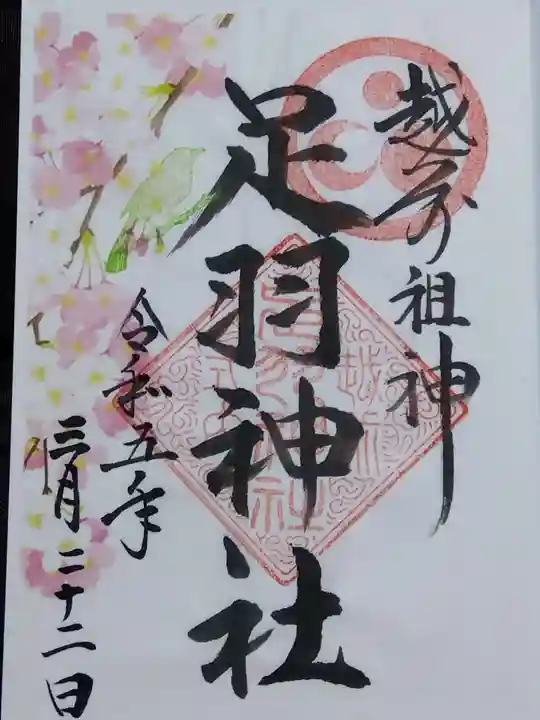 越前祖神
足羽神社
令和五年
三月二十二日